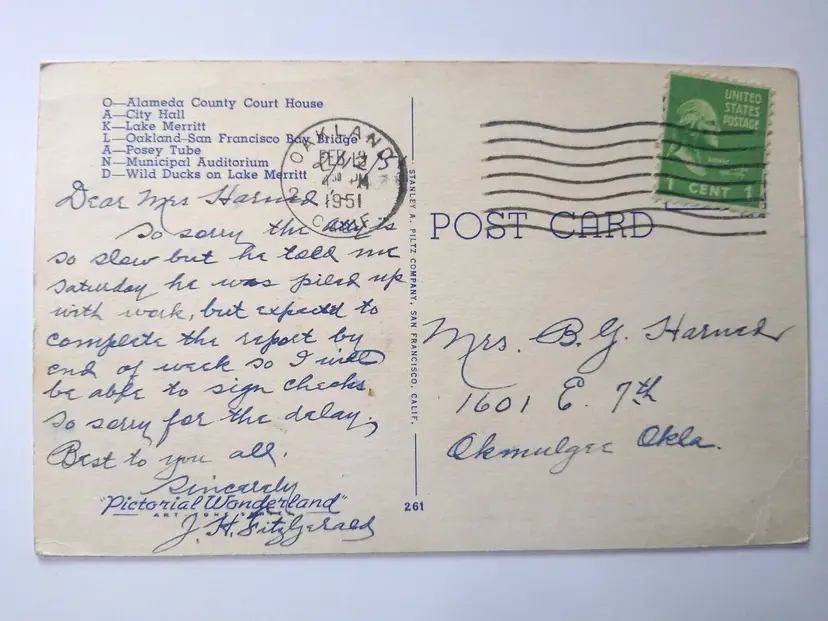 O—Alameda County Court House
A—City Hall
K—Lake Merritt
L—Oakland-San Francisco Bay Bridge
A—Posey Tube
N—Municipal Auditorium
D—Wild Ducks on Lake Merritt
OAKLAND
FEB 12
PM
1951
CALIF.
2/12/5
UNITED
STATES
POSTAGE
1 CENT 1
POST CARD
Dear Mrs Harned
So sorry the att'y is
so slow but he told me
Saturday he was piled up
with work, but expected to
complete the report by
end of week so I will
be able to sign checks
So sorry for the delay,
Best to you all.
Sincerely
J. H. Fitzgerald
"Pictorial Wonderland"
STANLEY A. PILTZ COMPANY, SAN FRANCISCO, CALIF.
261
Mrs. B. G. Harned
1601 E. 7th
Okmulgee Okla.